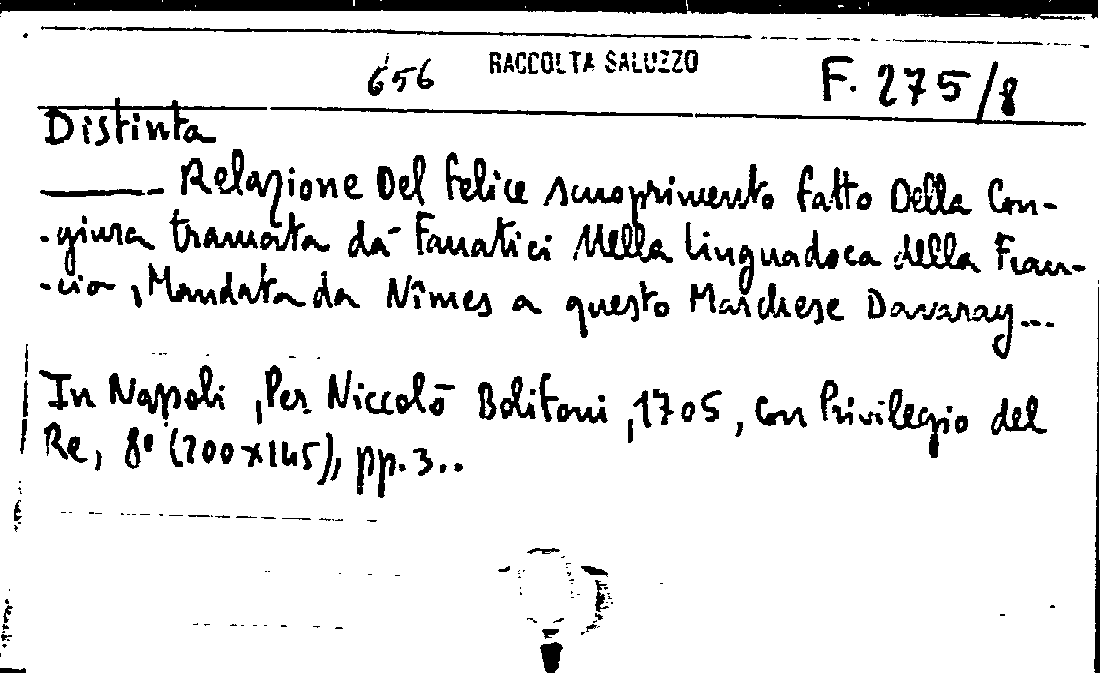 656 RACCOLTA SALUZZO F. 275/8
Distinta
——— Relazione Del felice scuoprimento fatto Della Con-
-giura tramata dà Fanatici Nella Linguadoca della Fran-
-cia, Mandata da Nîmes a questo Marchese Davaray...
In Napoli, Per Niccolò Bolifoni, 1705, con Privilegio del
Re, 8º (200x145), pp. 3..